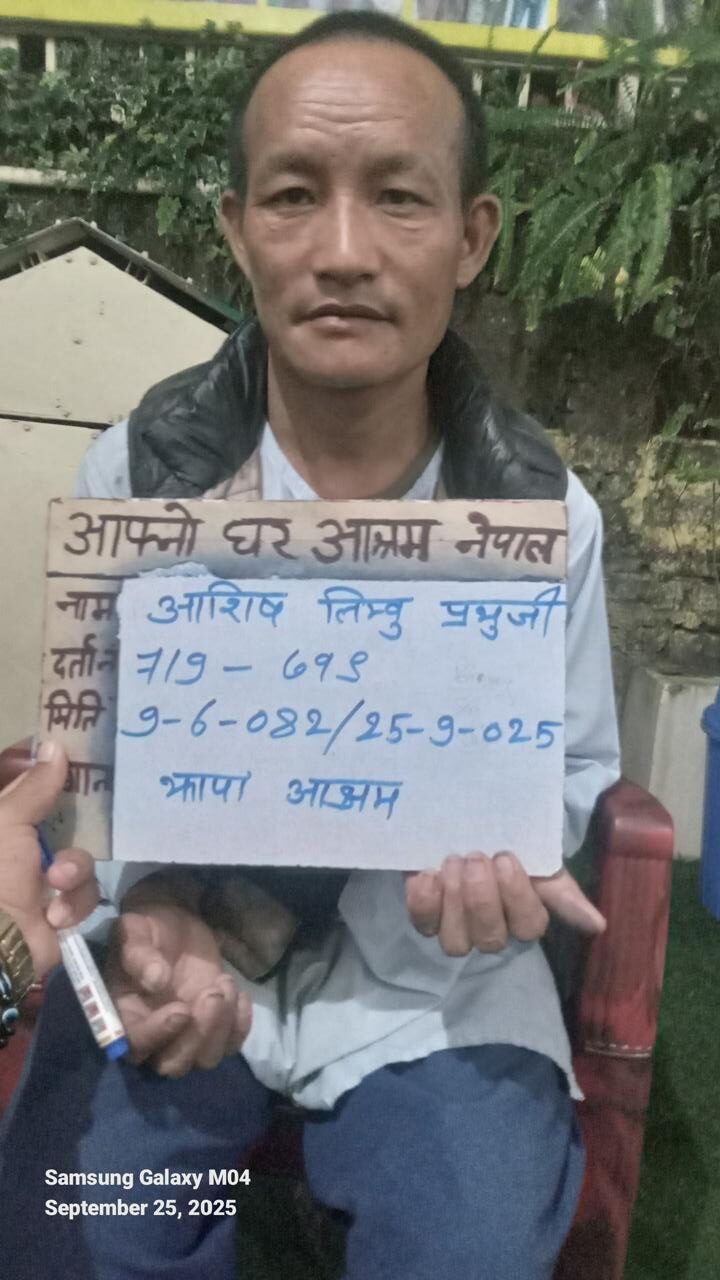 आफ्नो घर आश्रम नेपाल
नाम आशिष लिम्बु प्रभुजी
दर्ता नं 719 - ६१९
मिति 9-6-082/25-9-025
झापा आश्रम
Samsung Galaxy M04
September 25, 2025